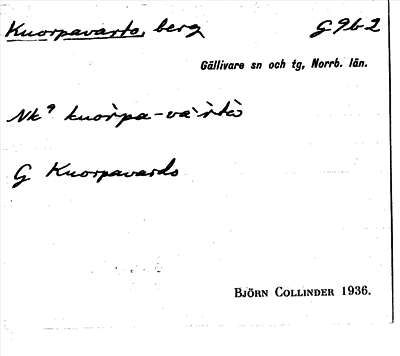 Knorpavarto, berg G 9b2
Gällivare sn och tg, Norrb. län.
Nk⁹ kuorpa-vàr̀tò
G Knorpavardo
BJÖRN COLLINDER 1936.